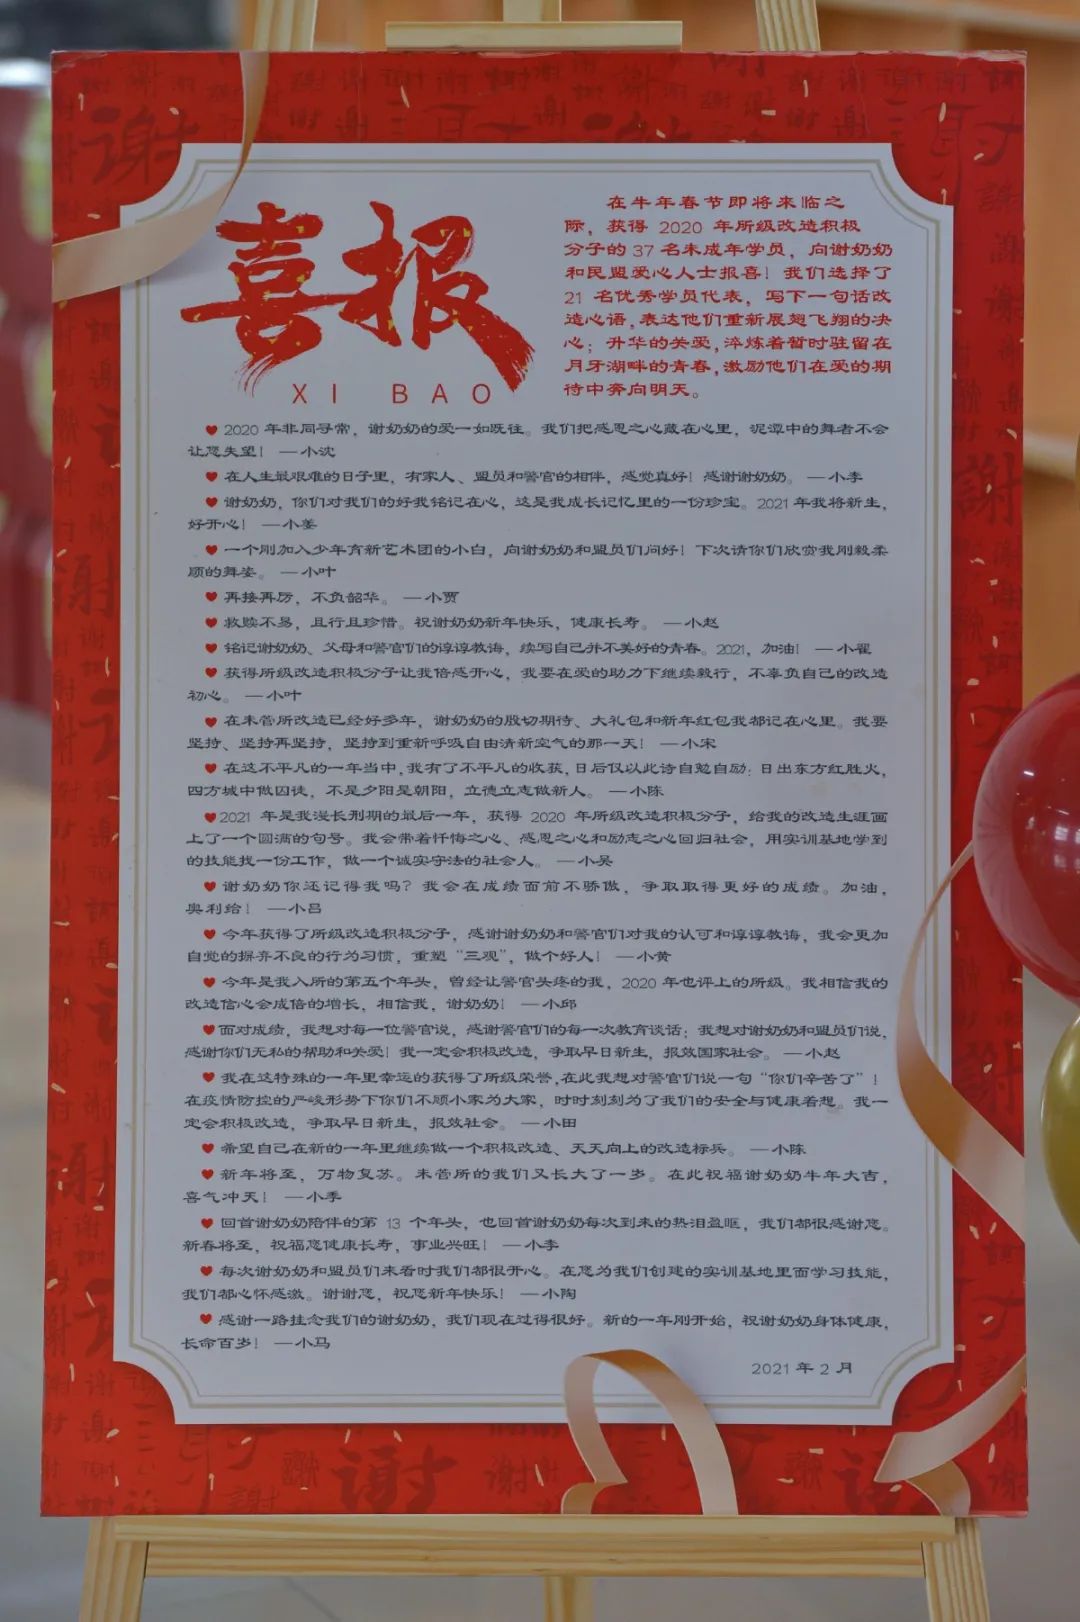 喜报
XI BAO
在牛年春节即将来临之
际，获得 2020 年所级改造积极
分子的 37 名未成年学员，向谢奶奶
和民盟爱心人士报喜！我们选择了
21 名优秀学员代表，写下一句话改
造心语，表达他们重新展翅飞翔的决
心；升华的关爱，淬炼着暂时驻留在
月牙湖畔的青春，激励他们在爱的期
待中奔向明天。
♥ 2020 年非同寻常，谢奶奶的爱一如既往。我们把感恩之心藏在心里，泥潭中的舞者不会
让您失望！ —小沈
♥ 在人生最艰难的日子里，有家人、盟员和警官的相伴，感觉真好！感谢谢奶奶。 —小李
♥ 谢奶奶，你们对我们的好我铭记在心，这是我成长记忆里的一份珍宝。2021年我将新生，
好开心！ —小姜
♥ 一个刚加入少年育新艺术团的小白，向谢奶奶和盟员们问好！下次请你们欣赏我刚毅柔
顾的舞姿。 —小叶
♥ 再接再厉，不负韶华。 —小贾
♥ 救赎不易，且行且珍惜。祝谢奶奶新年快乐，健康长寿。 —小赵
♥ 铭记谢奶奶、父母和警官们的谆谆教诲，续写自己并不美好的青春。2021，加油！ —小翟
♥ 获得所级改造积极分子让我倍感开心，我要在爱的助力下继续毅行，不辜负自己的改造
初心。 —小叶
♥ 在未管所改造已经好多年，谢奶奶的殷切期待、大礼包和新年红包我都记在心里。我要
坚持、坚持再坚持，坚持到重新呼吸自由清新空气的那一天！ —小宋
♥ 在这不平凡的一年当中，我有了不平凡的收获，日后仅以此诗自勉自励：日出东方红胜火，
四方城中做囚徒，不是夕阳是朝阳，立德立志做新人。 —小陈
♥2021 年是我漫长刑期的最后一年，获得 2020 年所级改造积极分子，给我的改造生涯画
上了一个圆满的句号。我会带着忏悔之心、感恩之心和励志之心回归社会，用实训基地学到
的技能找一份工作，做一个诚实守法的社会人。 —小吴
♥ 谢奶奶你还记得我吗？我会在成绩面前不骄傲，争取取得更好的成绩。加油，
奥利给！ —小吕
♥ 今年获得了所级改造积极分子，感谢谢奶奶和警官们对我的认可和谆谆教诲，我会更加
自觉的摒弃不良的行为习惯，重塑“三观”，做个好人！ —小黄
♥ 今年是我入所的第五个年头，曾经让警官头疼的我，2020 年也评上的所级。我相信我的
改造信心会成倍的增长，相信我，谢奶奶！ —小邱
♥面对成绩，我想对每一位警官说，感谢警官们的每一次教育谈话；我想对谢奶奶和盟员们说，
感谢你们无私的帮助和关爱！我一定会积极改造，争取早日新生，报效国家社会。 —小赵
♥ 我在这特殊的一年里幸运的获得了所级荣誉，在此我想对警官们说一句“你们辛苦了”！
在疫情防控的严峻形势下你们不顾小家为大家，时时刻刻为了我们的安全与健康着想。我一
定会积极改造，争取早日新生，报效社会。 —小田
♥ 希望自己在新的一年里继续做一个积极改造、天天向上的改造标兵。 —小陈
♥ 新年将至，万物复苏。未管所的我们又长大了一岁。在此祝福谢奶奶牛年大吉，
喜气冲天！ —小季
♥ 回首谢奶奶陪伴的第 13 个年头，也回首谢奶奶每次到来的热泪盈眶，我们都很感谢您。
新春将至，祝福您健康长寿，事业兴旺！ —小李
♥ 每次谢奶奶和盟员们来看时我们都很开心。在您为我们创建的实训基地里面学习技能，
我们都心怀感激。谢谢您，祝您新年快乐！ —小陶
♥ 感谢一路挂念我们的谢奶奶，我们现在过得很好。新的一年刚开始，祝谢奶奶身体健康，
长命百岁！ —小马
2021 年 2 月